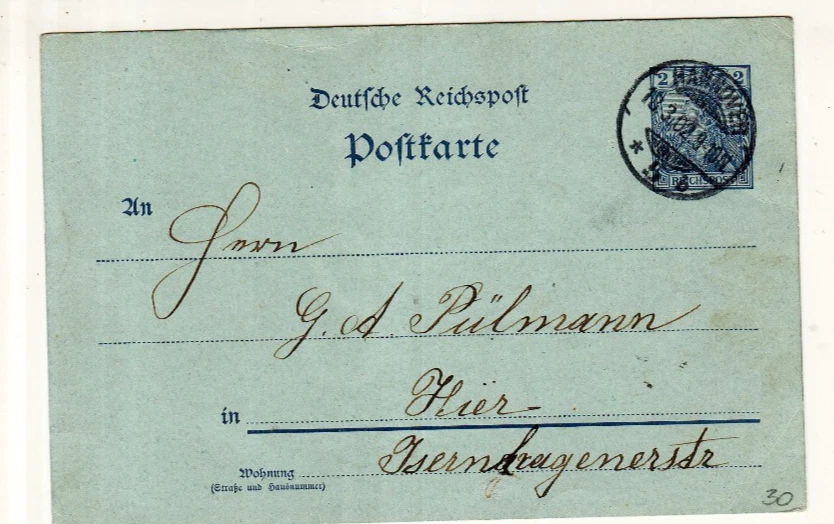 Deutsche Reichspost
Postkarte
2 2
HANNOVER
REICHSPOST
An
Herrn
G. A Pülmann
in Hier
Isernhagenerstr
Wohnung
(Straße und Hausnummer)
30